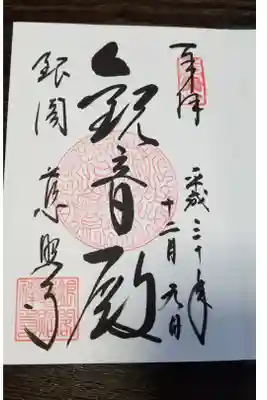 奉拝
平成三十年
十二月元日
観音殿
銀閣 慈照寺